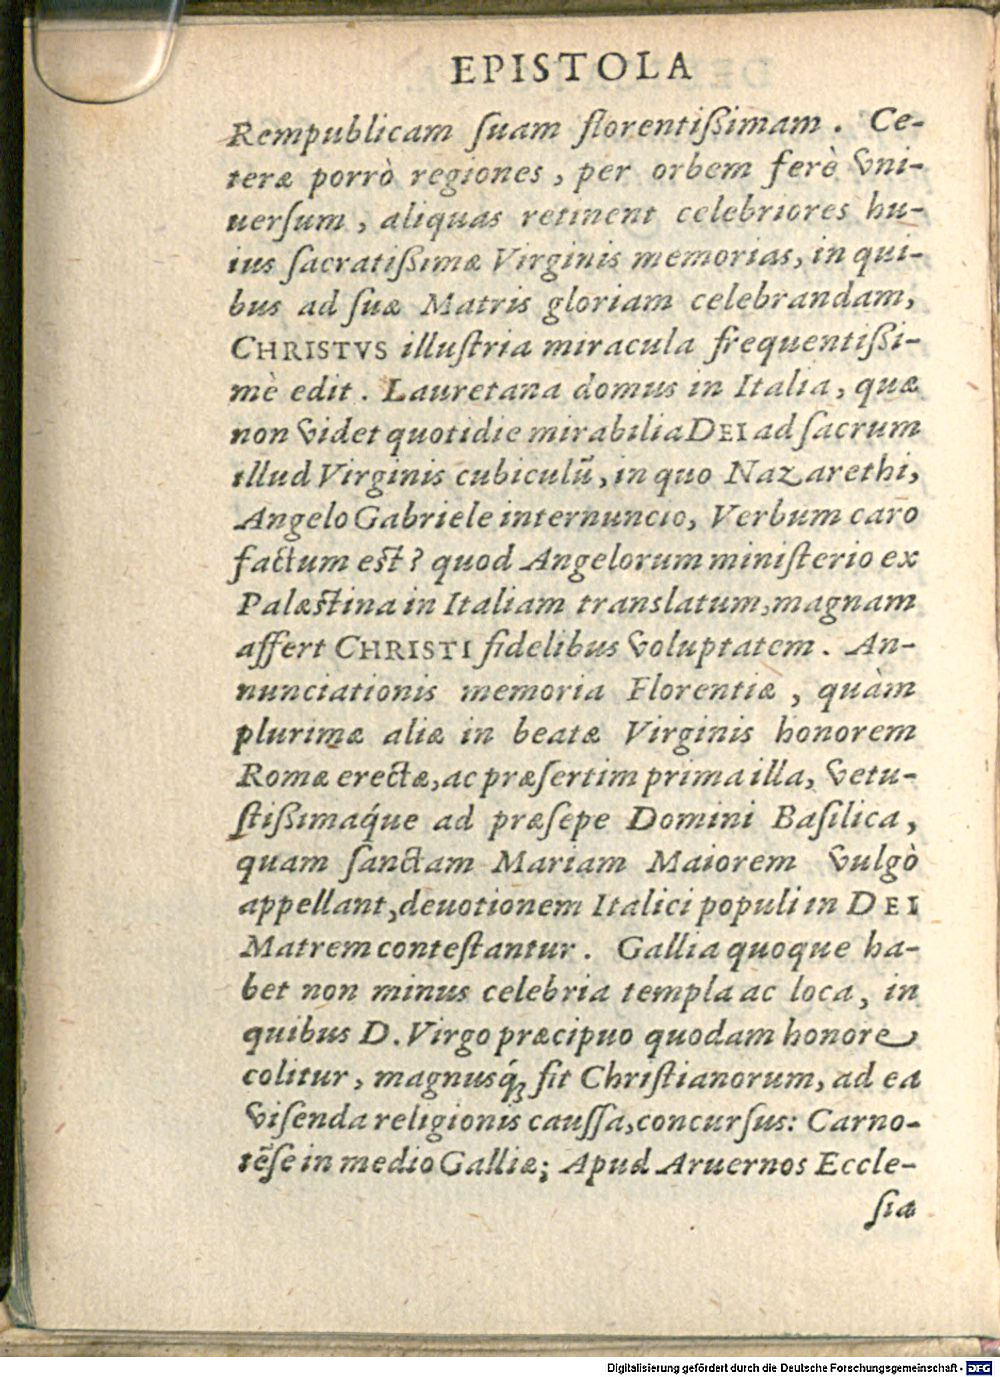 EPISTOLA
Rempublicam ſuam florentiſſimam. Ce-
teræ porrò regiones, per orbem ferè vni-
uerſum, aliquas retinent celebriores hu-
ius ſacratiſſimæ Virginis memorias, in qui-
bus ad ſuæ Matris gloriam celebrandam,
CHRISTVS illuſtria miracula frequentiſſi-
mè edit. Lauretana domus in Italia, quæ
non videt quotidie mirabilia DEI ad ſacrum
illud Virginis cubiculũ, in quo Nazarethi,
Angelo Gabriele internuncio, Verbum caro
factum eſt? quod Angelorum miniſterio ex
Palæſtina in Italiam translatum, magnam
affert CHRISTI fidelibus voluptatem. An-
nunciationis memoria Florentiæ, quàm
plurimæ aliæ in beatæ Virginis honorem
Romæ erectæ, ac præſertim prima illa, vetu-
ſtiſſimaq́ue ad præſepe Domini Baſilica,
quam ſanctam Mariam Maiorem vulgò
appellant, deuotionem Italici populi in DEI
Matrem conteſtantur. Gallia quoque ha-
bet non minus celebria templa ac loca, in
quibus D. Virgo præcipuo quodam honore
colitur, magnusq́ꝫ fit Chriſtianorum, ad ea
viſenda religionis cauſſa, concurſus: Carno-
tẽſe in medio Galliæ; Apud Aruernos Eccle-
ſia
Digitalisierung gefördert durch die Deutsche Forschungsgemeinschaft - DFG